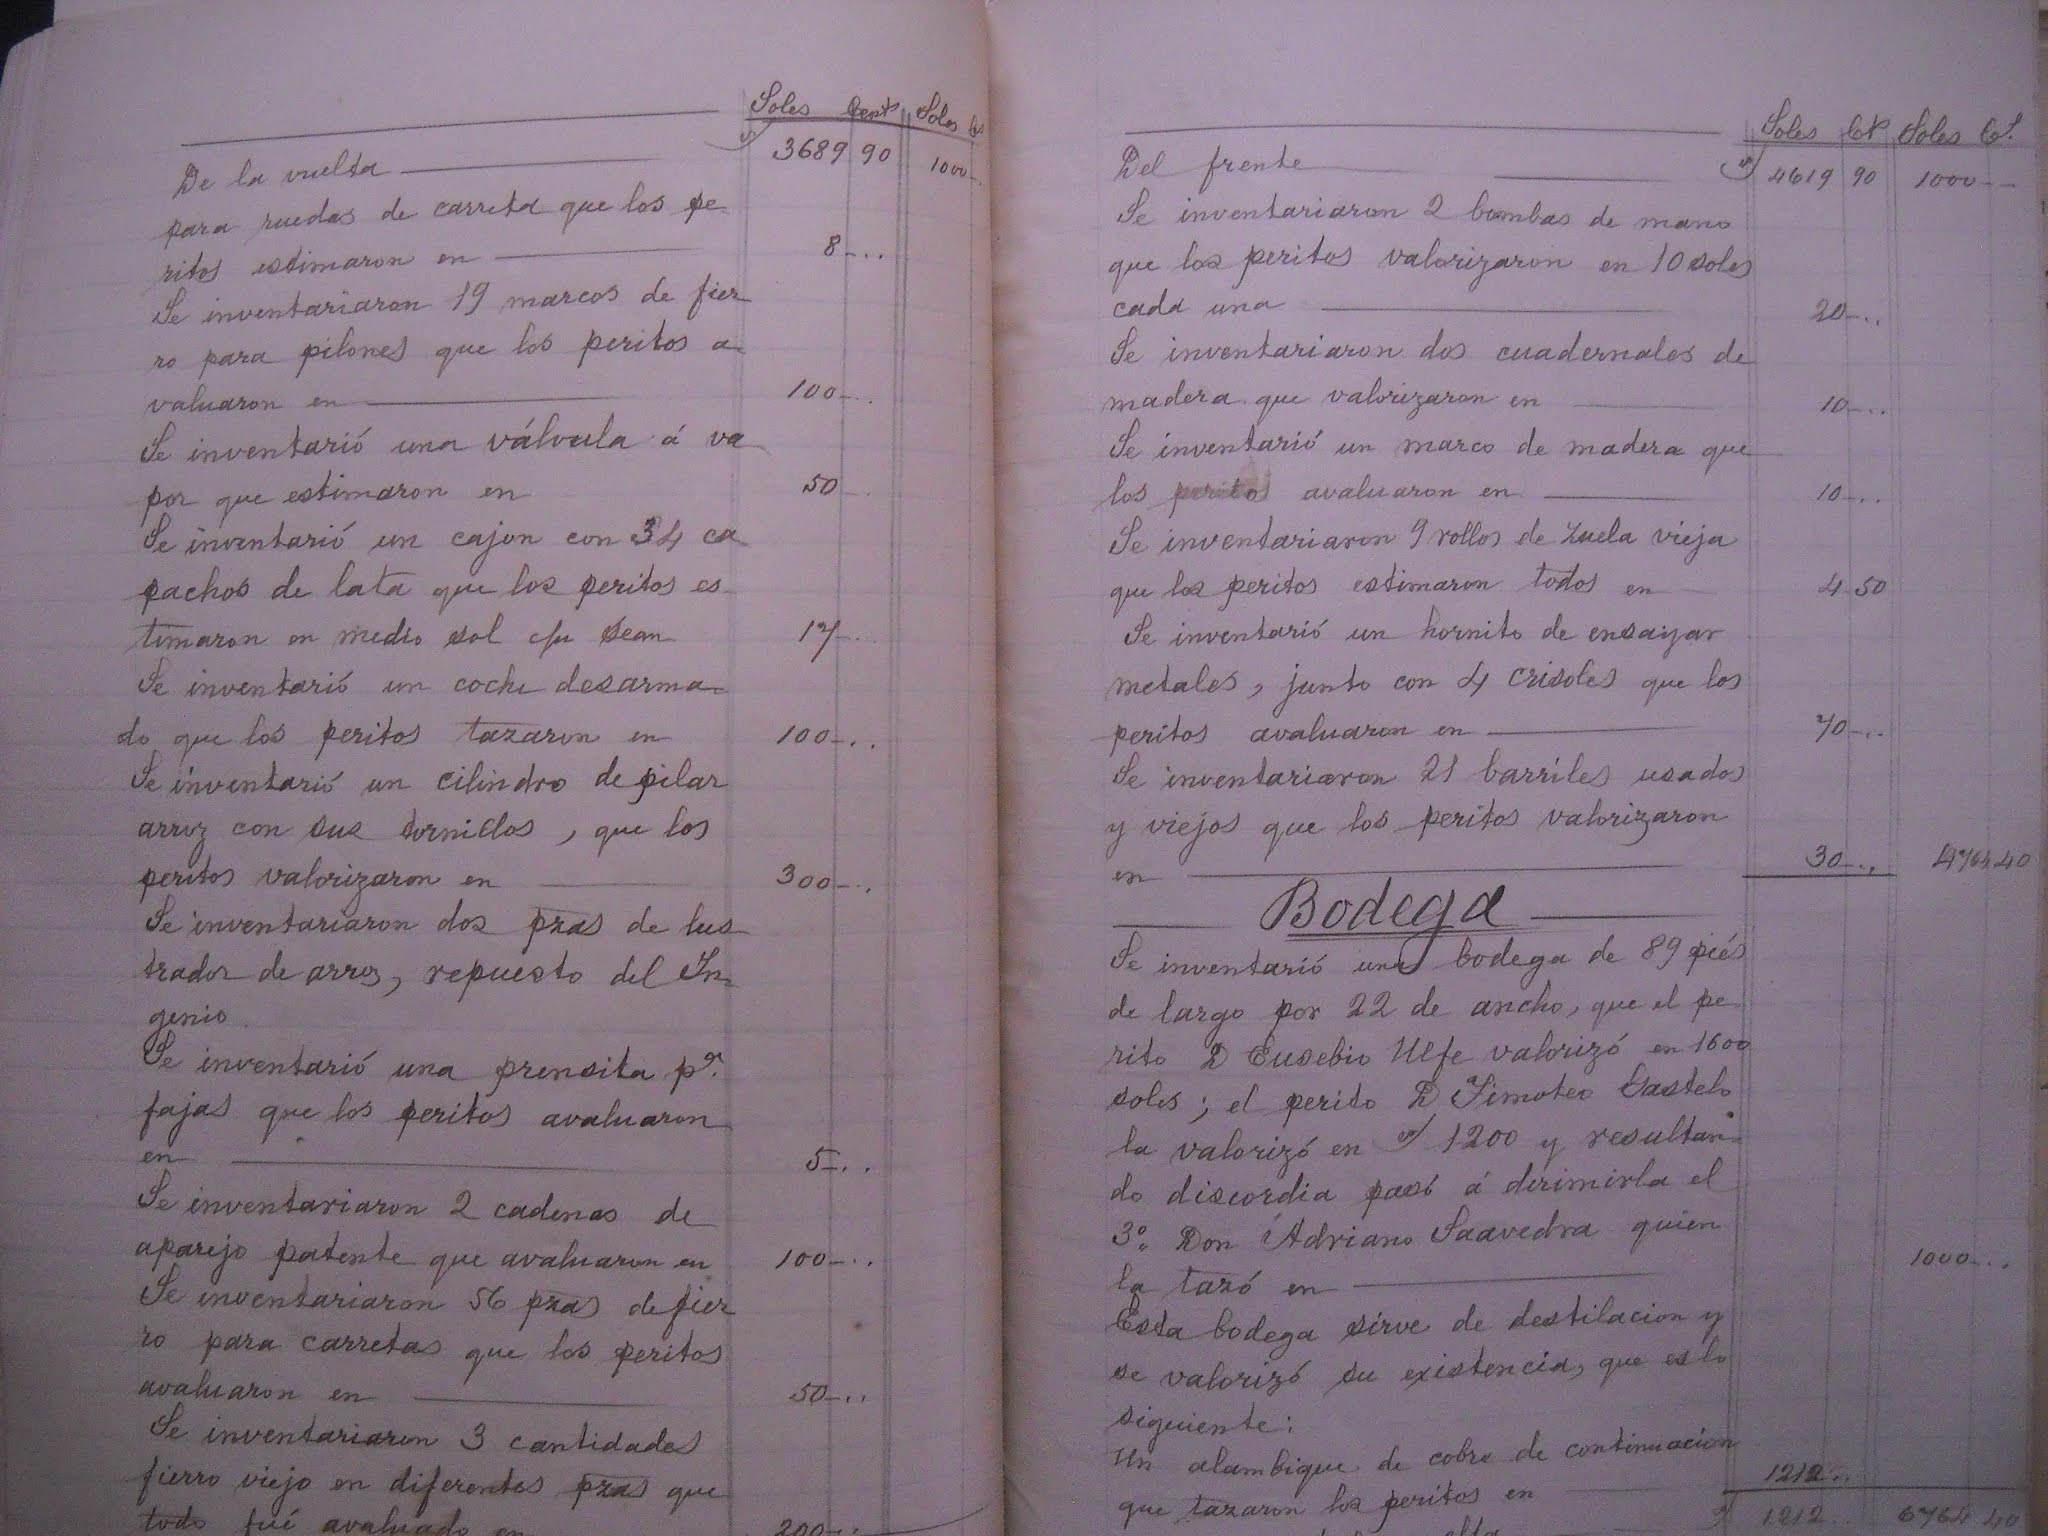 Soles Cents Soles Cs
De la vuelta 3689 90 1000
para ruedas de carreta que los pe-
ritos estimaron en 8
Se inventariaron 19 marcos de fier
ro para pilones que los peritos a-
valuaron en 100
Se inventarió una válvula á va
por que estimaron en 50
Se inventarió un cajon con 34 ca
pachos de lata que los peritos es-
timaron en medio sol c/u sean 17
Se inventarió un coche desarma-
do que los peritos tazaron en 100
Se inventarió un cilindro de pilar
arroz con sus tornillos, que los
peritos valorizaron en 300
Se inventariaron dos pzas de lus
trador de arroz, repuesto del In-
genio
Se inventarió una prensita pa.
fajas que los peritos avaluaron
en 5
Se inventariaron 2 cadenas de
aparejo patente que avaluaron en 100
Se inventariaron 56 pzas de fier
ro para carretas que los peritos
avaluaron en 50
Se inventariaron 3 cantidades
fierro viejo en diferentes pzas que
todo fué avaluado en 200
Soles Soles
Del frente 4619 90 1000
Se inventariaron 2 bombas de mano
que los peritos valorizaron en 10 soles
cada una 20
Se inventariaron dos cuadernales de
madera que valorizaron en 10
Se inventarió un marco de madera que
los peritos avaluaron en 10
Se inventariaron 9 rollos de zuela vieja
que los peritos estimaron todos en 4 50
Se inventarió un hornito de ensayar
metales, junto con 4 crisoles que los
peritos avaluaron en 70
Se inventariaron 21 barriles usados
y viejos que los peritos valorizaron
en 30 4764 40
Bodega
Se inventarió una bodega de 89 piés
de largo por 22 de ancho, que el pe-
rito D Eusebio Ulfe valorizó en 1600
soles; el perito D Timoteo Castelo
la valorizó en s/ 1200 y resultan-
do discordia pasó á dirimirla el
3o. Don Adriano Saavedra quien
la tazó en 1000
Esta bodega sirve de destilacion y
se valorizó su existencia, que es lo
siguiente:
Un alambique de cobre de continuacion
que tazaron los peritos en 1212
1212 6764 40